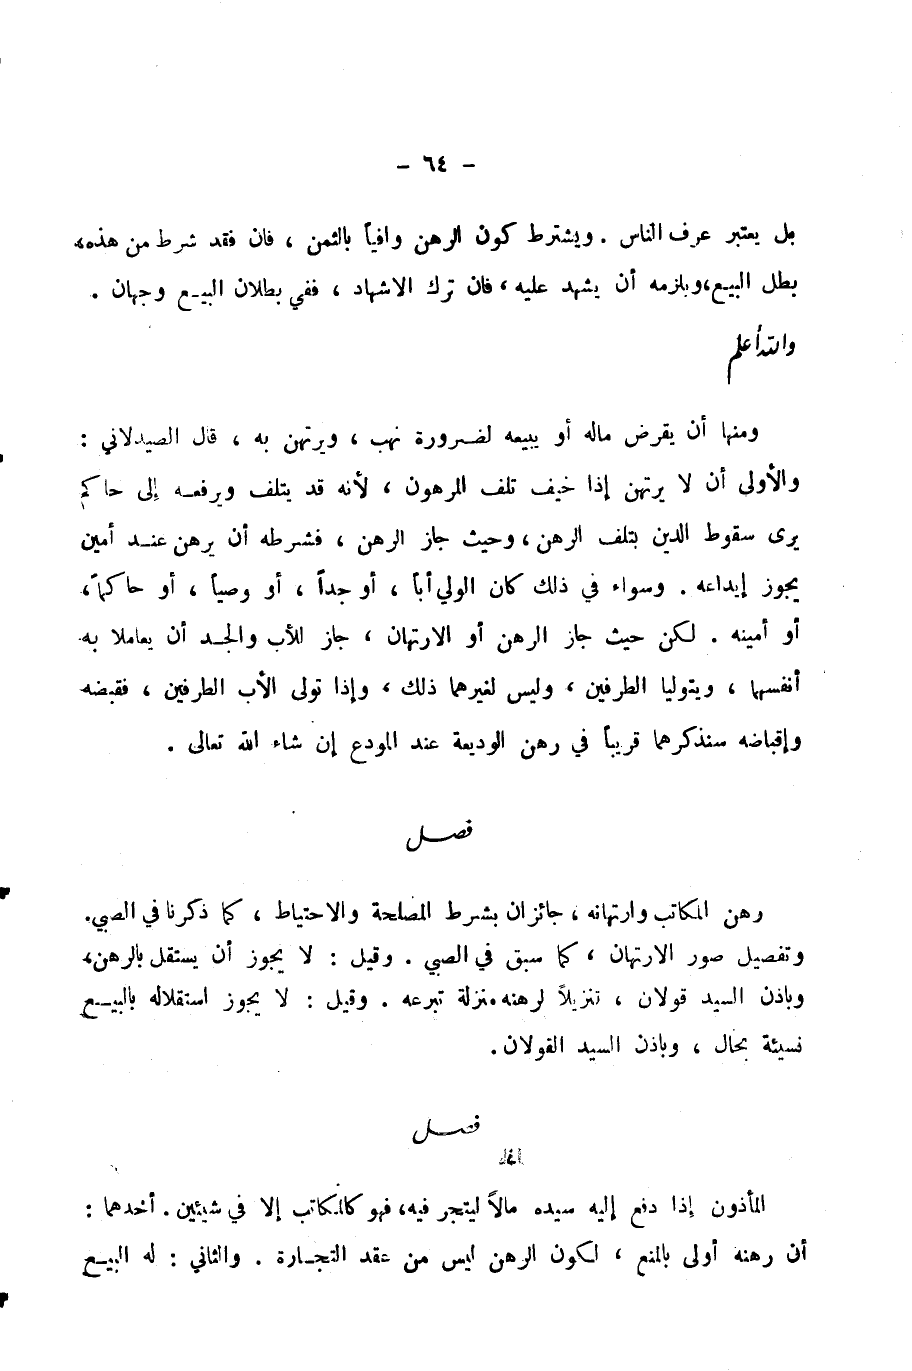 - ٦٤ -
بل يعتبر عرف الناس . ويشترط كون الرهن وافياً بالثمن ، فان فقد شرط من هذه،
بطل البيع،ويلزمه أن يشهد عليه ، فان ترك الاشهاد ، ففي بطلان البيع وجهان .
والله أعلم
ومنها أن يقرض ماله أو يبيعه لضرورة نهب ، ويرتهن به ، قال الصيدلاني :
والأولى أن لا يرتهن إذا خيف تلف المرهون ، لأنه قد يتلف ويرفعه إلى حاكم
يرى سقوط الدين بتلف الرهن ، وحيث جاز الرهن ، فشرطه أن يرهن عند أمين
يجوز إيداعه . وسواء في ذلك كان الولي أباً ، أو جداً ، أو وصياً ، أو حاكماً ،
أو أمينه . لكن حيث جاز الرهن أو الارتهان ، جاز للأب والجد أن يعاملا به
أنفسهما ، ويتوليا الطرفين ، وليس لغيرهما ذلك ، وإذا تولى الأب الطرفين ، فقبضه
وإقباضه سنذكرهما قريباً في رهن الوديعة عند المودع إن شاء الله تعالى .
فصل
رهن المكاتب وارتهانه ، جائزان بشرط المصلحة والاحتياط ، كما ذكرنا في الصبي.
وتفصيل صور الارتهان ، كما سبق في الصبي . وقيل : لا يجوز أن يستقل بالرهن،
وباذن السيد قولان ، تنزيلاً لرهنه منزلة تبرعه . وقيل : لا يجوز استقلاله بالبيع
نسيئة بحال ، وباذن السيد القولان .
فصل
المأذون إذا دفع إليه سيده مالاً ليتجر فيه، فهو كالمكاتب إلا في شيئين . أحدهما :
أن رهنه أولى بالمنع ، لكون الرهن ليس من عقد التجارة . والثاني : له البيع